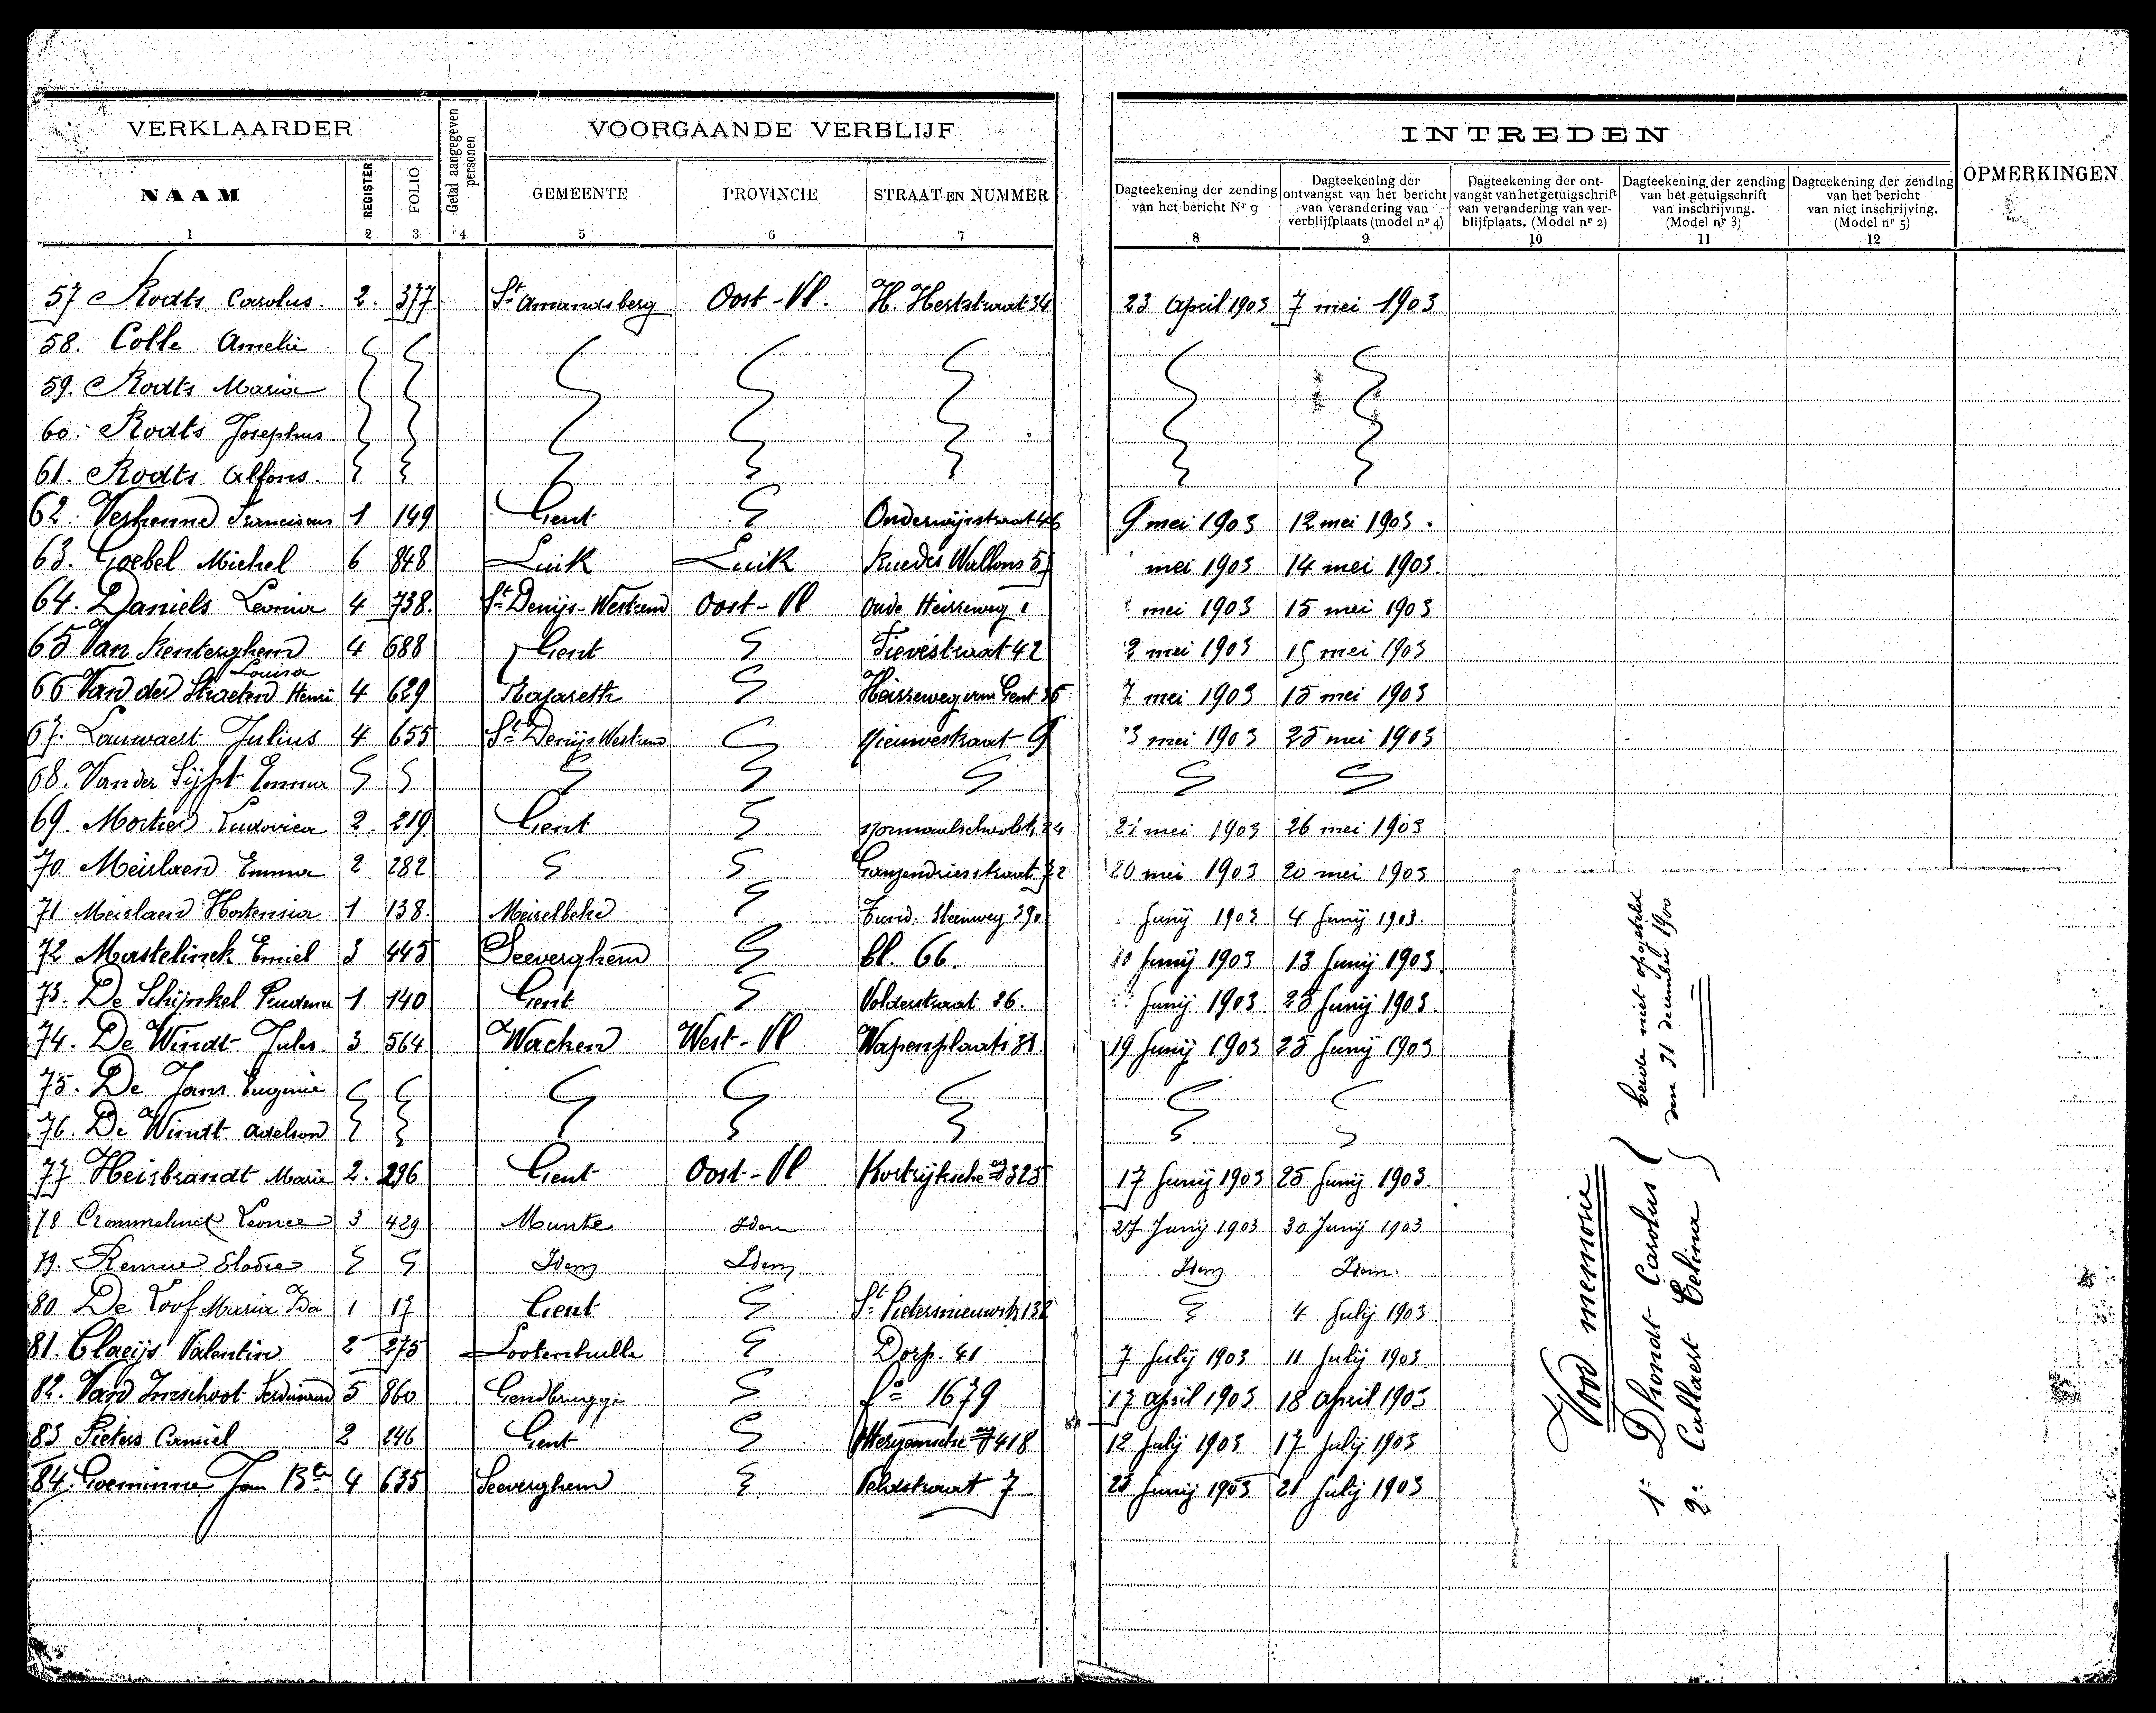 VERKLAARDER
Getal aangegeven personen
VOORGAANDE VERBLIJF
INTREDEN
OPMERKINGEN
NAAM REGISTER FOLIO GEMEENTE PROVINCIE STRAAT EN NUMMER
Dagteekening der zending van het bericht Nr 9
Dagteekening der ontvangst van het bericht van verandering van verblijfplaats (model nr 4)
Dagteekening der ontvangst van het getuigschrift van verandering van verblijfplaats. (Model nr 2)
Dagteekening der zending van het getuigschrift van inschrijving. (Model nr 3)
Dagteekening der zending van het bericht van niet inschrijving. (Model nr 5)
1 2 3 4 5 6 7 8 9 10 11 12
57 Rodts Carolus. 2. 377 St Amandsberg Oost-Vl. H. Hertstraat 34 23 April 1903 7 mei 1903
58. Colle Amelie
59. Rodts Maria
60. Rodts Josephus
61. Rodts Alfons.
62. Franciscus 1 149 Gent 9 mei 1903 12 mei 1903.
63. Goebel Michel 6 848 Luik Luik Rue des Wallons mei 1903 14 mei 1903.
64. Daniels Leonia 4 738. St Denijs-Westrem Oost-Vl Oude Heirweg 1 mei 1903 15 mei 1903
65 Van Renterghem Louisa 4 688 Gent Lievestraat 42 2 mei 1903 15 mei 1903
66 Van der Straeten Henri 4 629 Nazareth Heirweg van Gent 7 mei 1903 15 mei 1903
67. Lauwaert Julius 4 655 St Denijs Westrem Nieuwestraat 9 3 mei 1903 25 mei 1903
68. Van der Sijpt Emma
69. Mortier Ludovica 2. 219 Gent Normaalschoolstr. 24 mei 1903 26 mei 1903
70 Meirlaen Emma 2 282 Ganzendriesstraat 20 mei 1903 20 mei 1903
71 Meirlaen Hortensia 1 138. Meirelbeke Hundelg. Steenweg 390 Junij 1903 4 Junij 1903.
72 Mastelinck Emiel 3 445 Seeverghem bl. 66. 10 Junij 1903 13 Junij 1903.
73. De Schijnkel Prudence 1 140 Gent Volderstraat 36. Junij 1903 25 Junij 1903.
74. De Windt Jules. 3 564 Wacken West-Vl Wapenplaats 19 Junij 1903 25 Junij 1903
75. De Jans Eugenie
76. De Windt Adelson
77 Heisbrandt Marie 2. 296 Gent Oost-Vl Kortrijksche 17 Junij 1903 25 Junij 1903.
78 Crommelinck Leonce 3 429 Munte Idem 27 Junij 1903 30 Junij 1903
79. Remue Elodie Idem Idem Idem Idem.
80 De Loof Maria Ida 1 17 Gent St Pietersnieuwstr 132 4 Julij 1903
81. Claeijs Valentin 2 275 Lootenhulle Dorp. 41 7 Julij 1903 11 Julij 1903.
82. Van Imschoot Ferdinand 5 860 Gendbrugge fo 1679 17 april 1903 18 april 1903
83 Pieters Camiel 2 246 Gent 418 12 Julij 1903 17 July 1903
84. Goeminne Jan Bte 4 635 Seeverghem Veldstraat 7 25 Junij 1903 21 Julij 1903
Voor memorie
1° Dhondt Carolus
2° Callaert Celina
beide niet opgetekt
den 31 december 1900